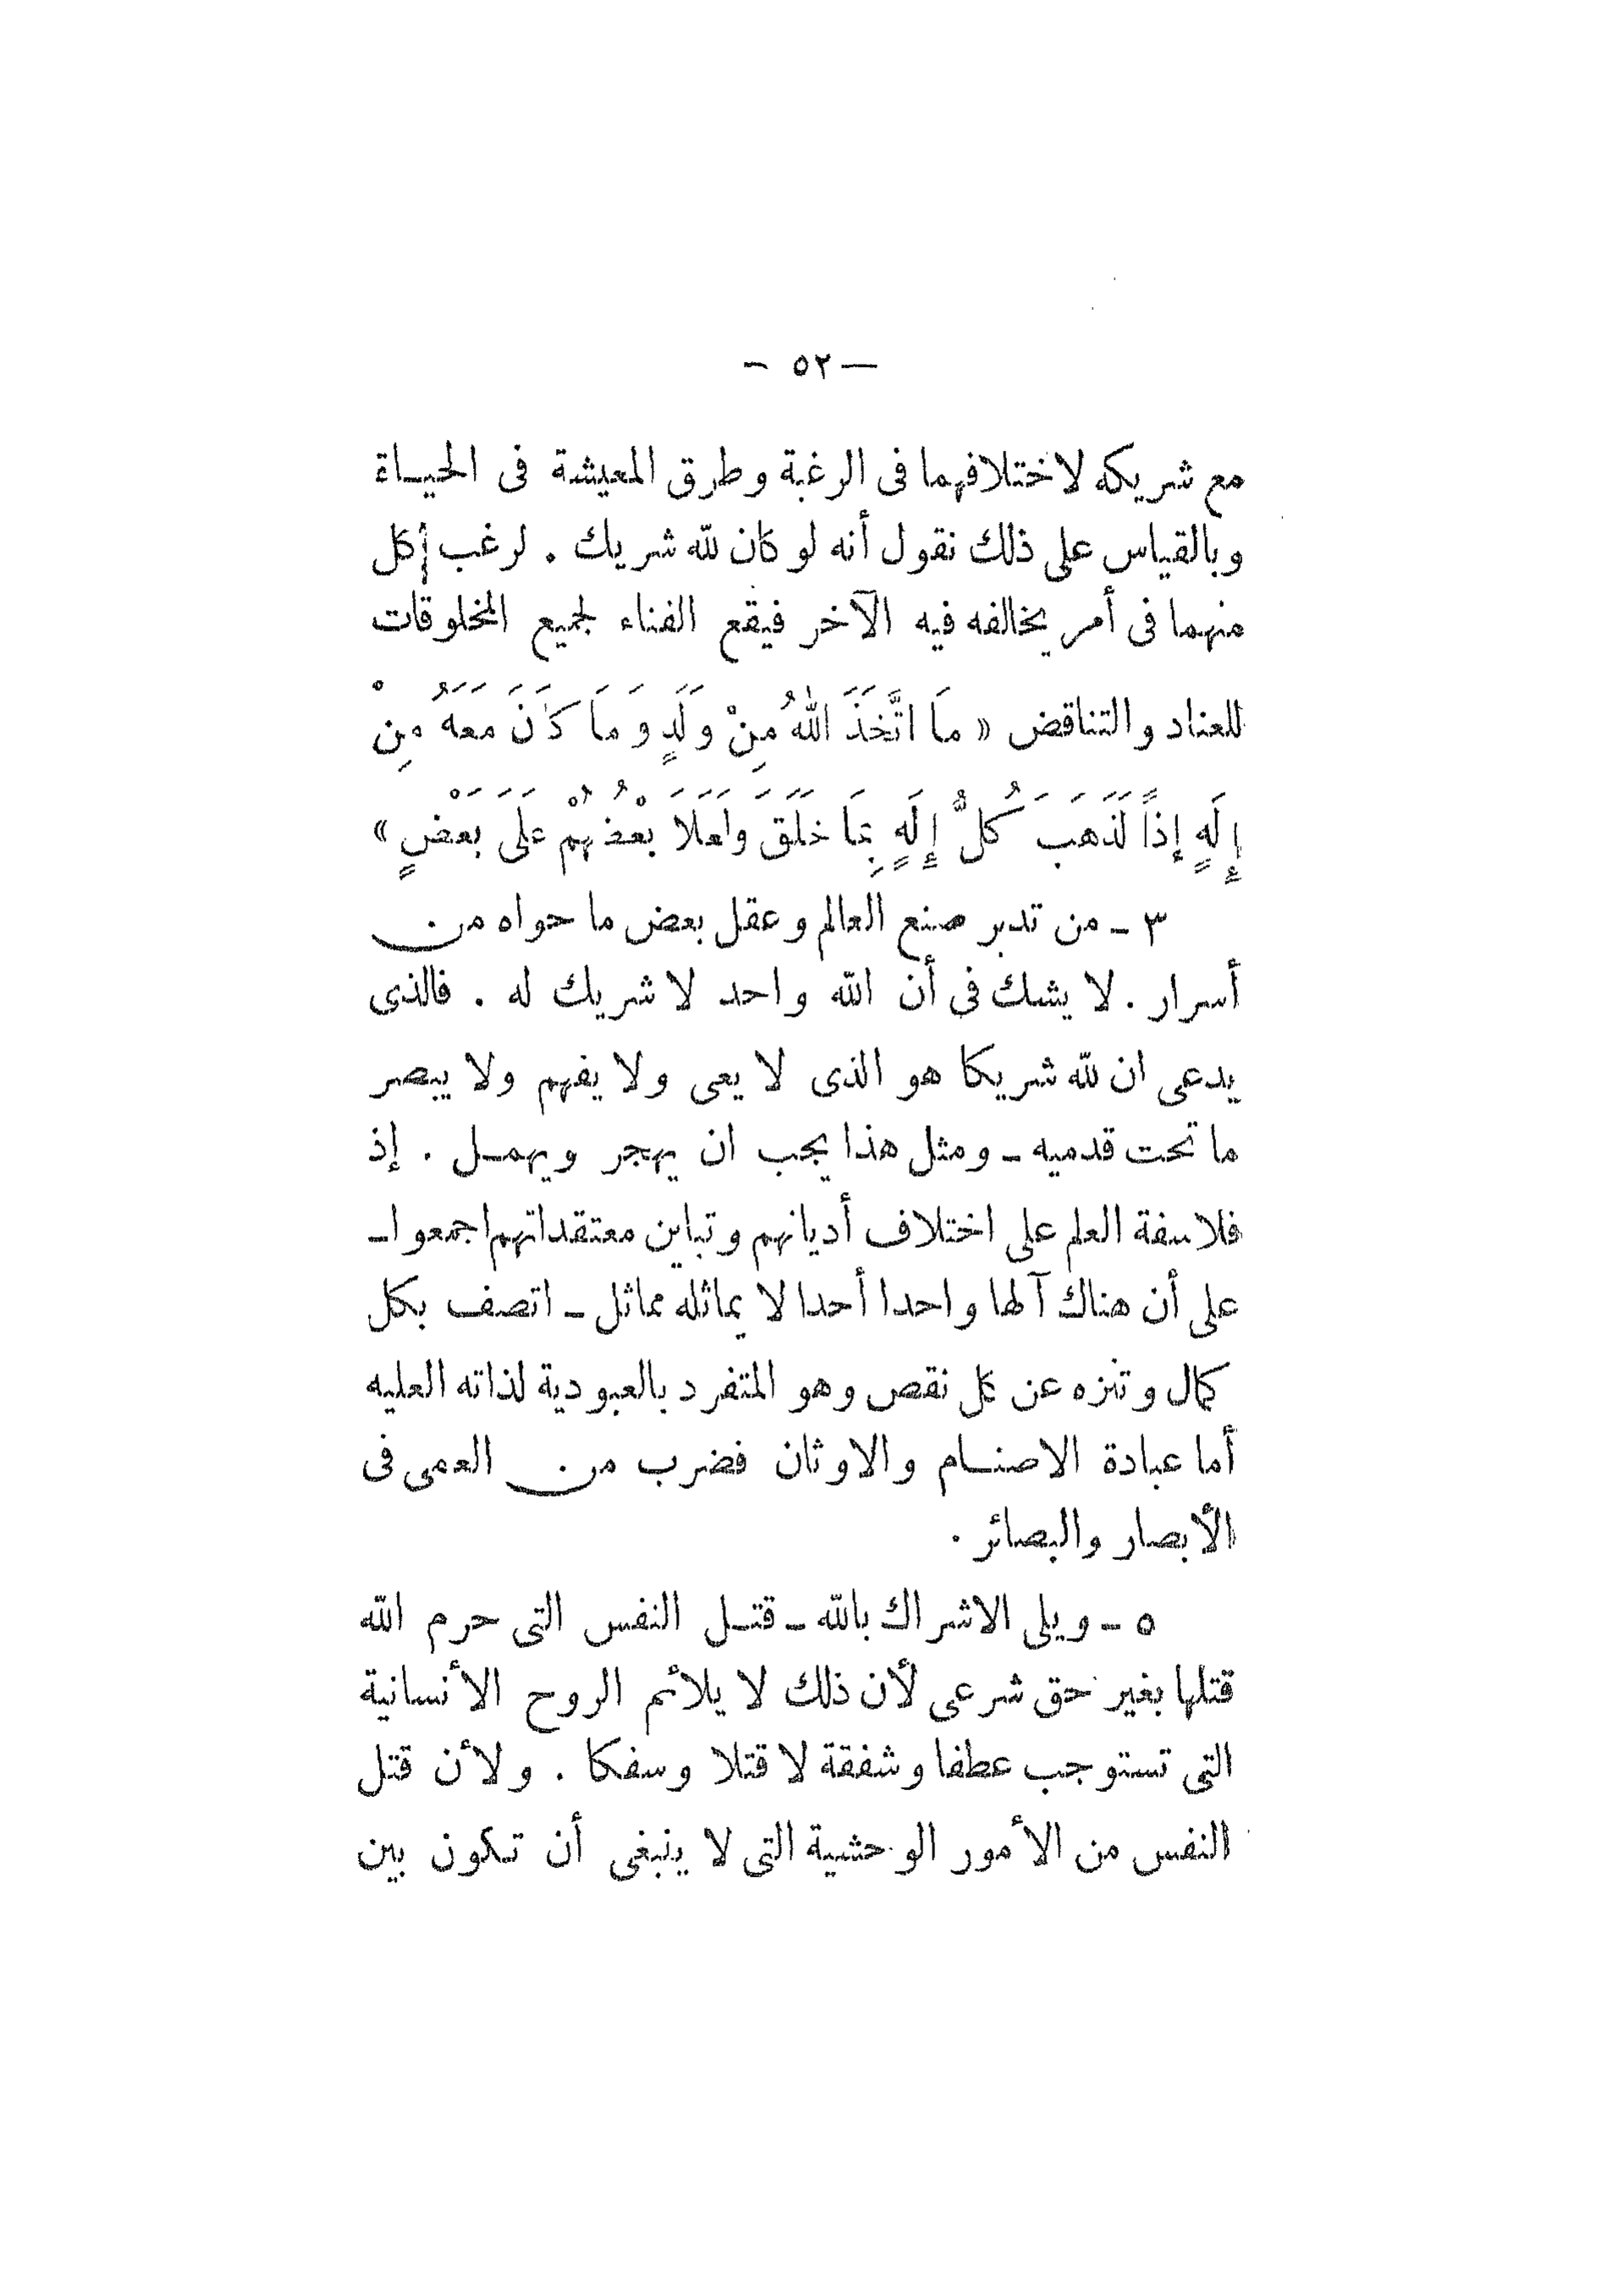 — ٥٢ —
مع شريكه لاختلافهما فى الرغبة وطرق المعيشة فى الحياة
وبالقياس على ذلك نقول أنه لو كان لله شريك . لرغب كل
منهما فى أمر يخالفه فيه الآخر فيقع الفناء لجميع المخلوقات
للعناد والتناقض « مَا اتَّخَذَ اللهُ مِنْ وَلَدٍ وَمَا كَانَ مَعَهُ مِنْ
إِلَهٍ إِذاً لَذَهَبَ كُلُّ إِلَهٍ بِمَا خَلَقَ وَلَعَلَا بَعْضُهُمْ عَلَى بَعْضٍ »
٣ ـ من تدبر صنع العالم وعقل بعض ما حواه من
أسرار . لا يشك فى أن الله واحد لا شريك له . فالذى
يدعى ان لله شريكا هو الذى لا يعى ولا يفهم ولا يبصر
ما تحت قدميه ـ ومثل هذا يجب ان يهجر ويهمل . إذ
فلاسفة العلم على اختلاف أديانهم وتباين معتقداتهم اجمعوا ـ
على أن هناك آلها واحدا أحدا لا يماثله مماثل ـ اتصف بكل
كمال وتنزه عن كل نقص وهو المتفرد بالعبودية لذاته العليه
أما عبادة الاصنام والاوثان فضرب من العمى فى
الأبصار والبصائر .
٥ ـ ويلى الاشراك بالله ـ قتل النفس التى حرم الله
قتلها بغير حق شرعى لأن ذلك لا يلائم الروح الأنسانية
التى تستوجب عطفا وشفقة لا قتلا وسفكا . ولأن قتل
النفس من الأمور الوحشية التى لا ينبغى أن تكون بين